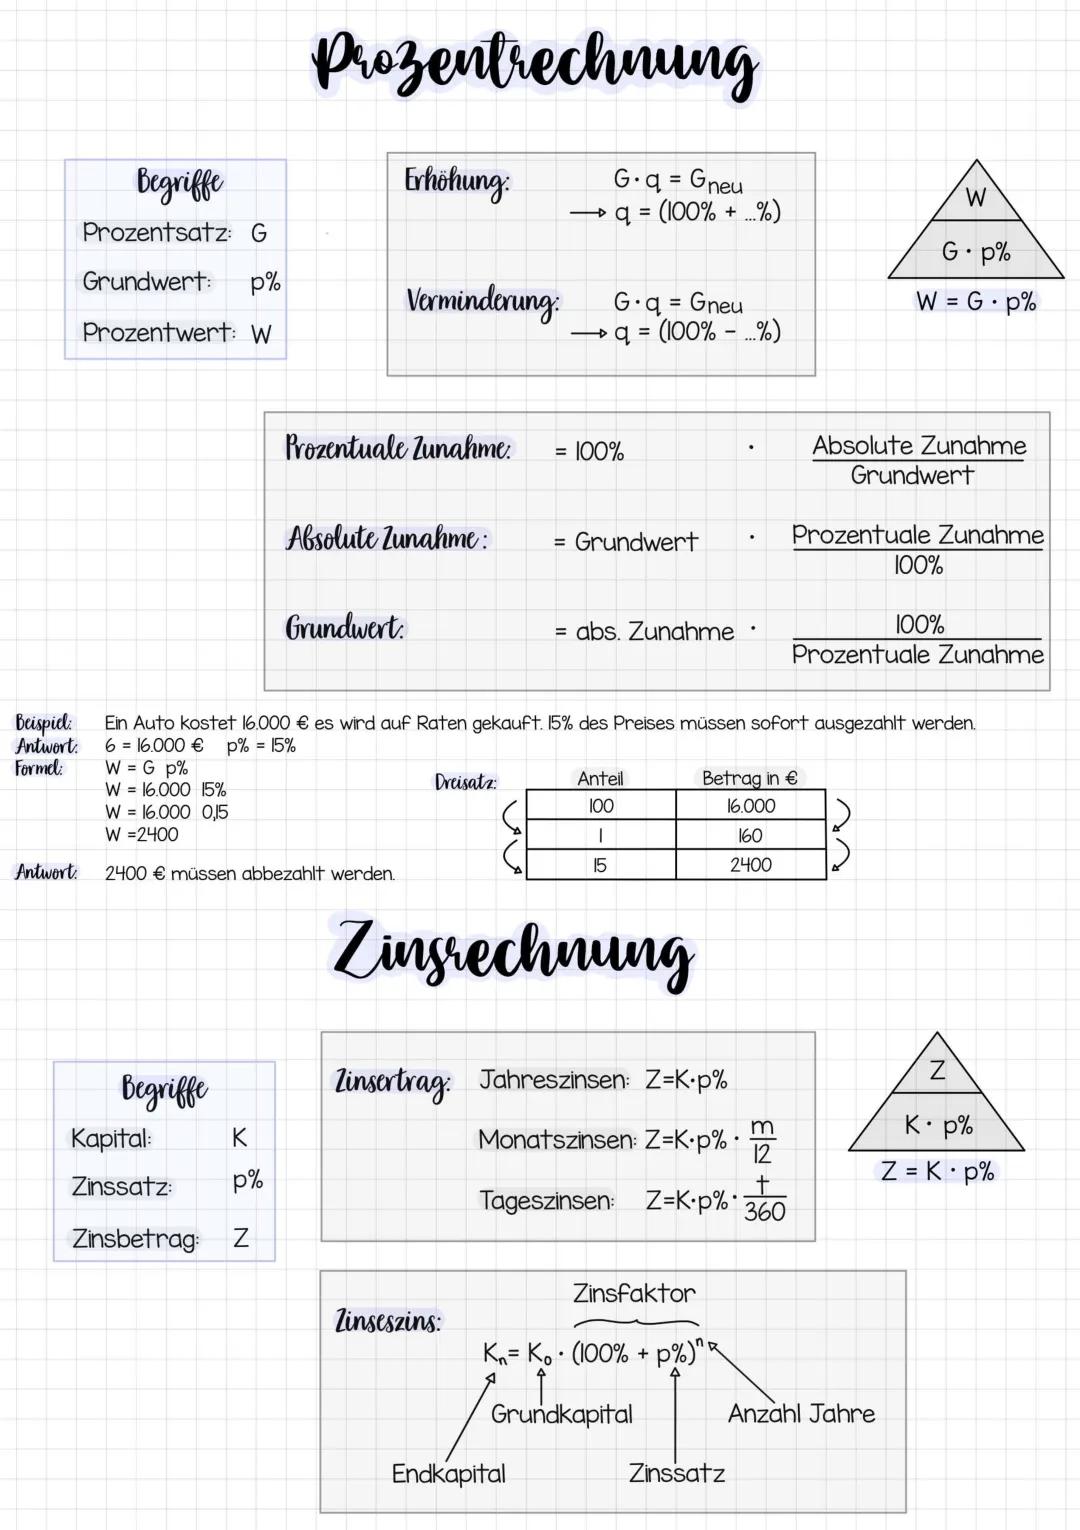 Prozentrechnung
Begriffe
Prozentsatz: G
Grundwert: p%
Prozentwert: W
Erhöhung: G·q = Gneu
→ q = (100% + ...%)
Verminderung: G·q = Gneu
→ q = (100% − ...%)
W
G · p%
W = G · p%
Prozentuale Zunahme: = 100% · Absolute Zunahme
Grundwert
Absolute Zunahme: = Grundwert · Prozentuale Zunahme
100%
Grundwert: = abs. Zunahme · 100%
Prozentuale Zunahme
Beispiel: Ein Auto kostet 16.000 € es wird auf Raten gekauft. 15% des Preises müssen sofort ausgezahlt werden.
Antwort: 6 = 16.000 € p% = 15%
Formel: W = G p%
W = 16.000 15%
W = 16.000 0,15
W =2400
Antwort: 2400 € müssen abbezahlt werden.
Dreisatz: Anteil Betrag in €
100 16.000
1 160
15 2400
Zinsrechnung
Begriffe
Kapital: K
Zinssatz: p%
Zinsbetrag: Z
Zinsertrag: Jahreszinsen: Z=K·p%
Monatszinsen: Z=K·p% · m
12
Tageszinsen: Z=K·p% · t
360
Z
K · p%
Z = K · p%
Zinsfaktor
Zinseszins:
Kₙ= K₀ · (100% + p%)ⁿ
Grundkapital Anzahl Jahre
Endkapital Zinssatz